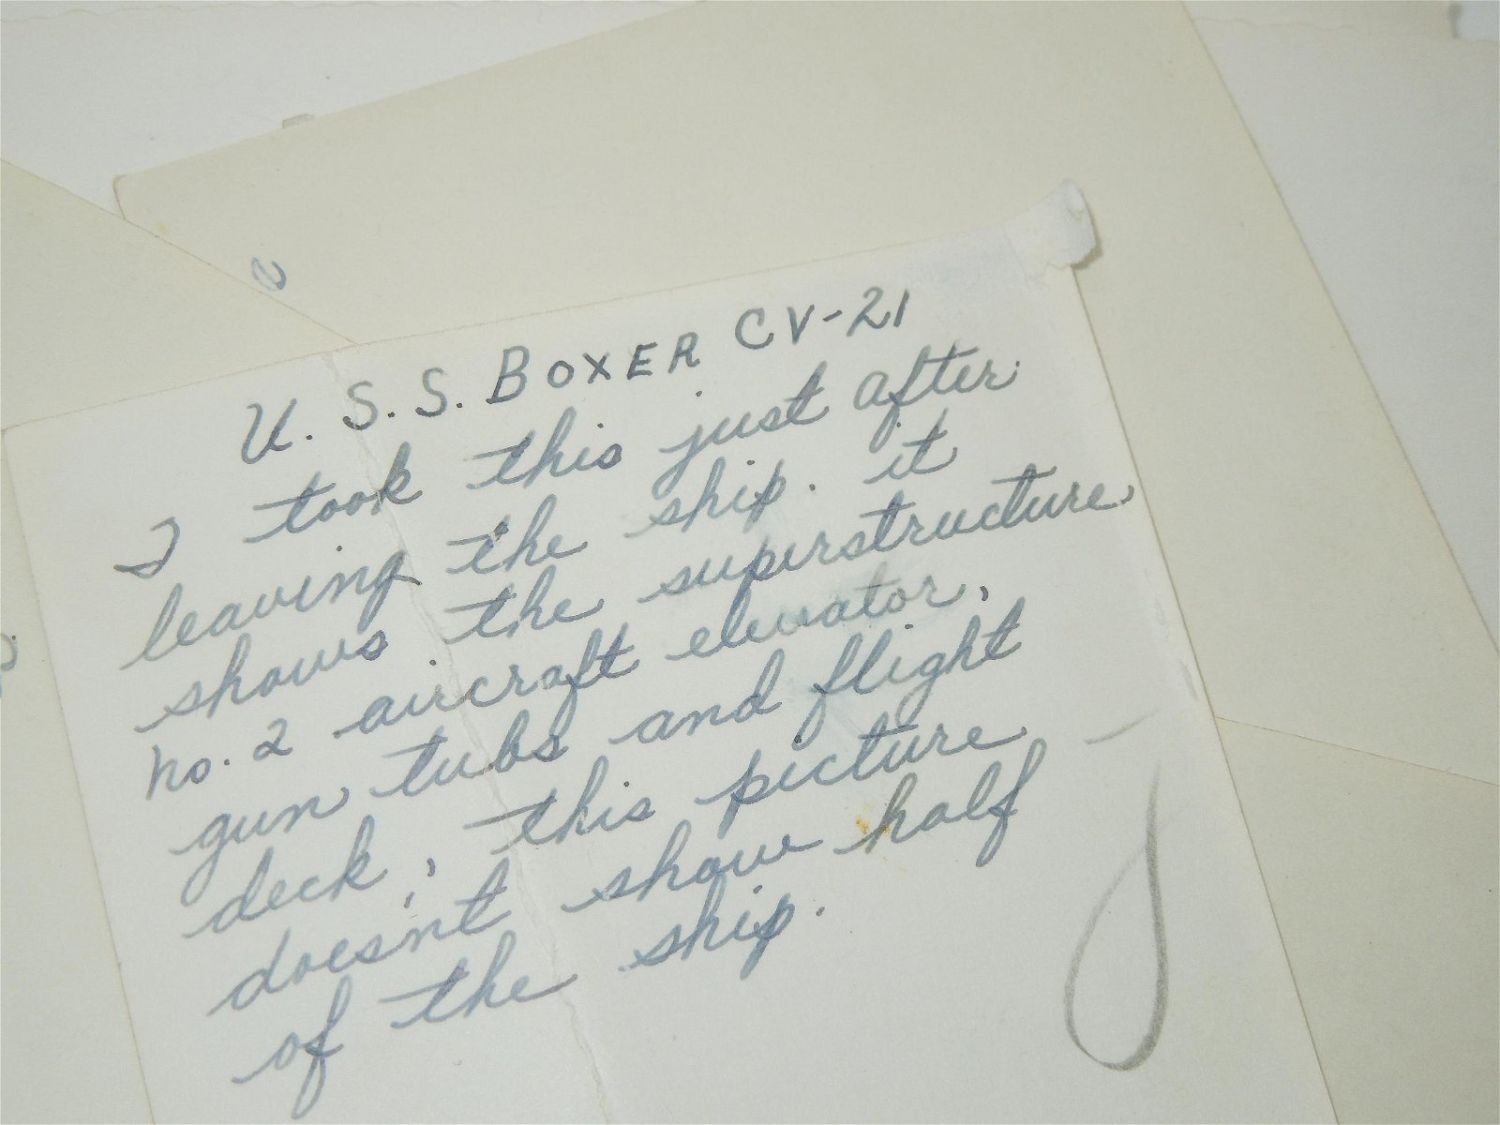 U. S. S. BOXER CV-21
I took this just after
leaving the ship. it
shows the superstructure
no. 2 aircraft elevator,
gun tubs and flight
deck, this picture
doesn't show half
of the ship.